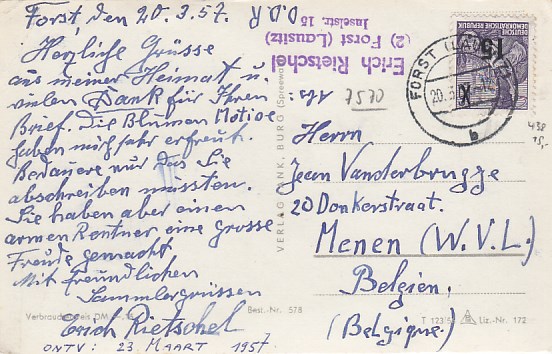 Forst, den 20.3.57. D.D.R
Herzliche Grüsse
aus meiner Heimat u.
vielen Dank für Ihren
Brief. Die Blumen Motive
haben mich sehr erfreut.
Bedauere nur das Sie
abschreiben mussten.
Sie haben aber einen
armen Rentner eine grosse
Freude gemacht
Mit freundlichen
Sammlergrüssen
Erich Rietschel
ONTV: 23 MAART 1957
Verbraucherpreis DM
Best.-Nr. 578
VERLAG BURG (Spreewald)
Erich Rietschel
(2) Forst (Lausitz)
Inselstr. 15
Abs.
7570
DEUTSCHE DEMOKRATISCHE REPUBLIK
15
FORST (LAUSITZ)
20.3.
b
438
15,-
Herrn
Jean Vanderbrugge
20 Donkerstraat.
Menen (W.V.L.)
Belgien,
(Belgique)
T 123
Liz.-Nr. 172